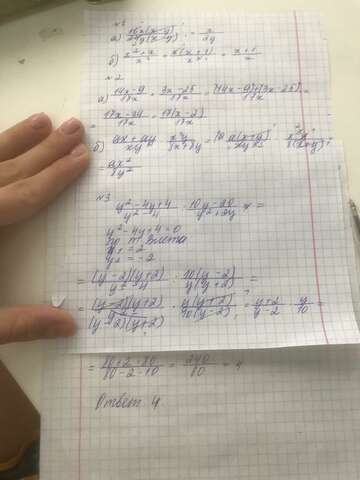 №1
а) 16x(x-y) / 24y(x-y) = x / 2y
б) x²+x / x² = x(x+1) / x² = x+1 / x
№2
а) 14x-9 / 17x + 3x-25 / 17x = (14x-9)+(3x-25) / 17x =
= 17x-34 / 17x = 17(x-2) / 17x
б) ax+ay / xy² · x³y / 3x+3y = a(x+y)
= ax² / 3y²
№3
y²-4y+4 / y²-4 : 10y-20 / y²+2y =
y²-4y+4=0
по т. Виета
y₁=2
y₂=-2
= (y-2)(y+2) / y²-4 : 10(y-2) / y(y+2) =
= (y-2)(y+2) / (y-2)(y+2) · y(y+2) / 10(y-2) = y+2 / y-2 · y / 10 =
= 80+2·80 / 80-2·10 = 240 / 60 = 4
Ответ 4.